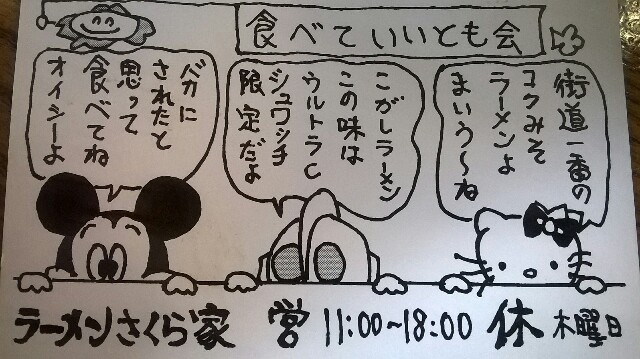 食べていいとも会
街道一番の
コクみそ
ラーメンよ
まいう〜ね
こがしラーメン
この味は
ウルトラC
シュワシチ
限定だよ
バカに
されたと
思って
食べてね
オイシーよ
ラーメンさくら家 営 11:00~18:00 休 木曜日